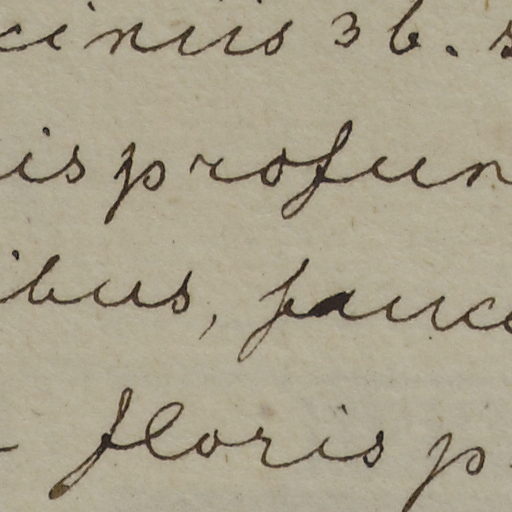 ciniis 36. s
is profun
ibus, fauce
floris p